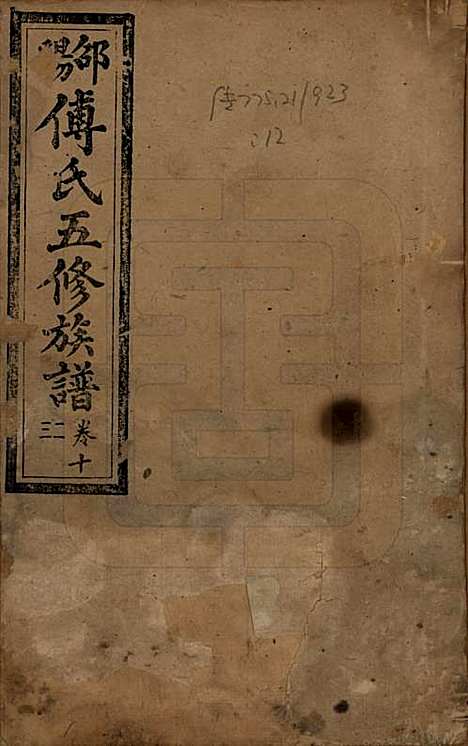 邵陽
傅氏五修族譜
卷十
二三
传775.21/923
:12